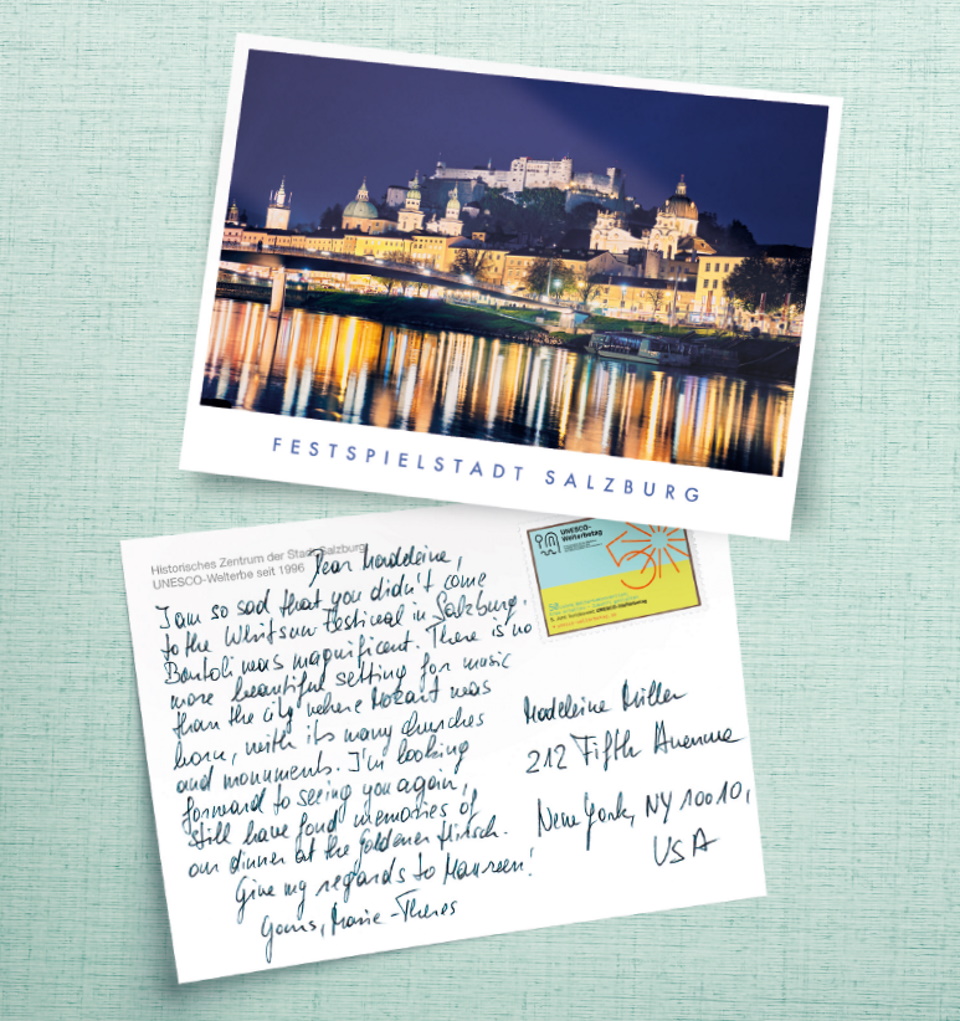 FESTSPIELSTADT SALZBURG
Historisches Zentrum der Stadt Salzburg
UNESCO-Welterbe seit 1996
Dear Madeleine,
I am so sad that you didn't come
to the Whitsun Festival in Salzburg.
Bartoli was magnificent. There is no
more beautiful setting for music
than the city where Mozart was
born, with its many churches
and monuments. I'm looking
forward to seeing you again,
still have fond memories of
our dinner at the Goldener Hirsch.
Give my regards to Maureen!
Yours, Marie-Theres
UNESCO-
Welterbetag
50
Madeleine Miller
212 Fifth Avenue
New York, NY 10010,
USA